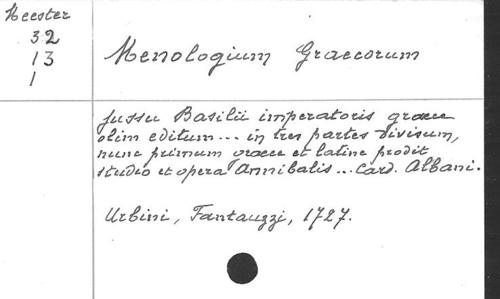 Meester
32
13
1
Menologium Graecorum
jussu Basilii imperatoris graece
olim editum... in tres partes divisum,
nunc primum graece et latine prodit
studio et opera Annibalis... Card. Albani.
Urbini, Fantauzzi, 1727.